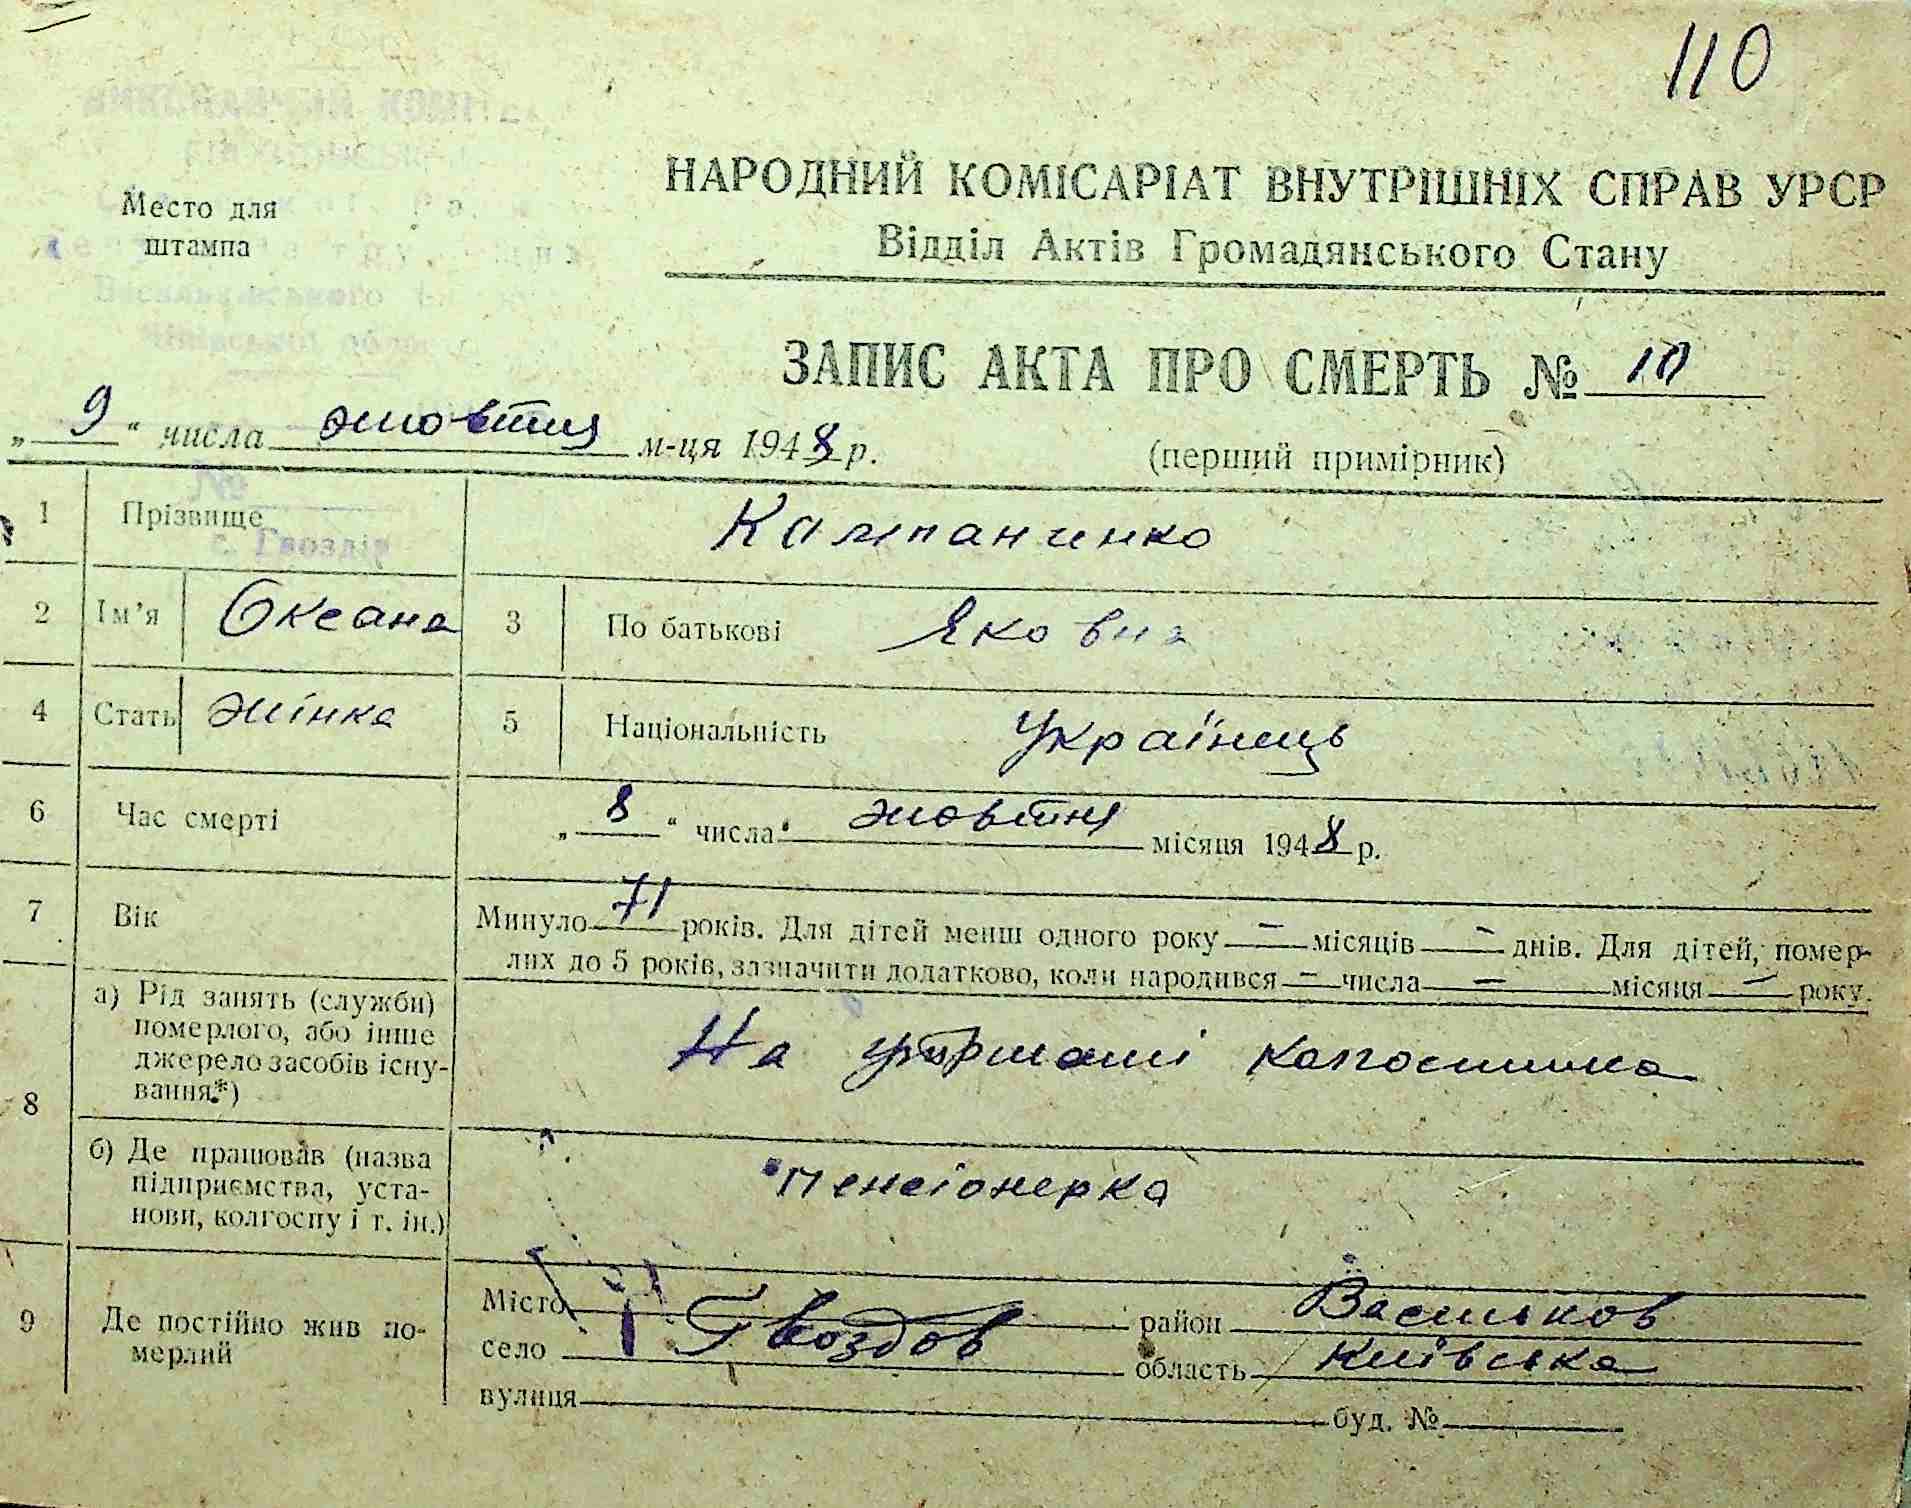 110
ВИКОНАВЧИЙ КОМІТЕТ
Место для
штампа
Васильківського
Київської обл.
НАРОДНИЙ КОМІСАРІАТ ВНУТРІШНІХ СПРАВ УРСР
Відділ Актів Громадянського Стану
ЗАПИС АКТА ПРО СМЕРТЬ № 10
„ 9 “ числа жовтня м-ця 1948 р.
(перший примірник)
№
с. Гвоздів
1 Прізвище
2 Ім’я Оксана 3 По батькові Яковна
4 Стать жінка 5 Національність Українець
6 Час смерті „ 8 “ числа жовтня місяця 1948 р.
7 Вік Минуло 71 років. Для дітей менш одного року — місяців — днів. Для дітей, помер-
лих до 5 років, зазначити додатково, коли народився — числа — місяця — року.
8 а) Рід занять (служби)
померлого, або інше
джерело засобів існу-
вання.*)
На
б) Де працював (назва
підприємства, уста-
нови, колгоспу і т. ін.)
пенсіонерка
9 Де постійно жив по-
мерлий
Місто район Васильков
село Гвоздов область Київська
вулиця буд. №